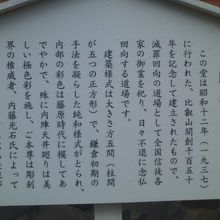 この堂は昭和十二年（一九三七）
に行われた、比叡山開創千百五十
年を記念して建立されたもので、
滅罪回向の道場として全国信徒各
家の御霊を祀り、日々不退に念仏
回向する道場です。
建築様式は大きさ方五間（柱間
が五つの正方形）で、鎌倉初期の
手法を凝らした純和様式がとられ、
内部の彩色は藤原時代に模してあ
でやかで、殊に内陣天井廻りは美
しい極色彩を施し、ご本尊は彫刻
界の権威者、内藤光石氏によって